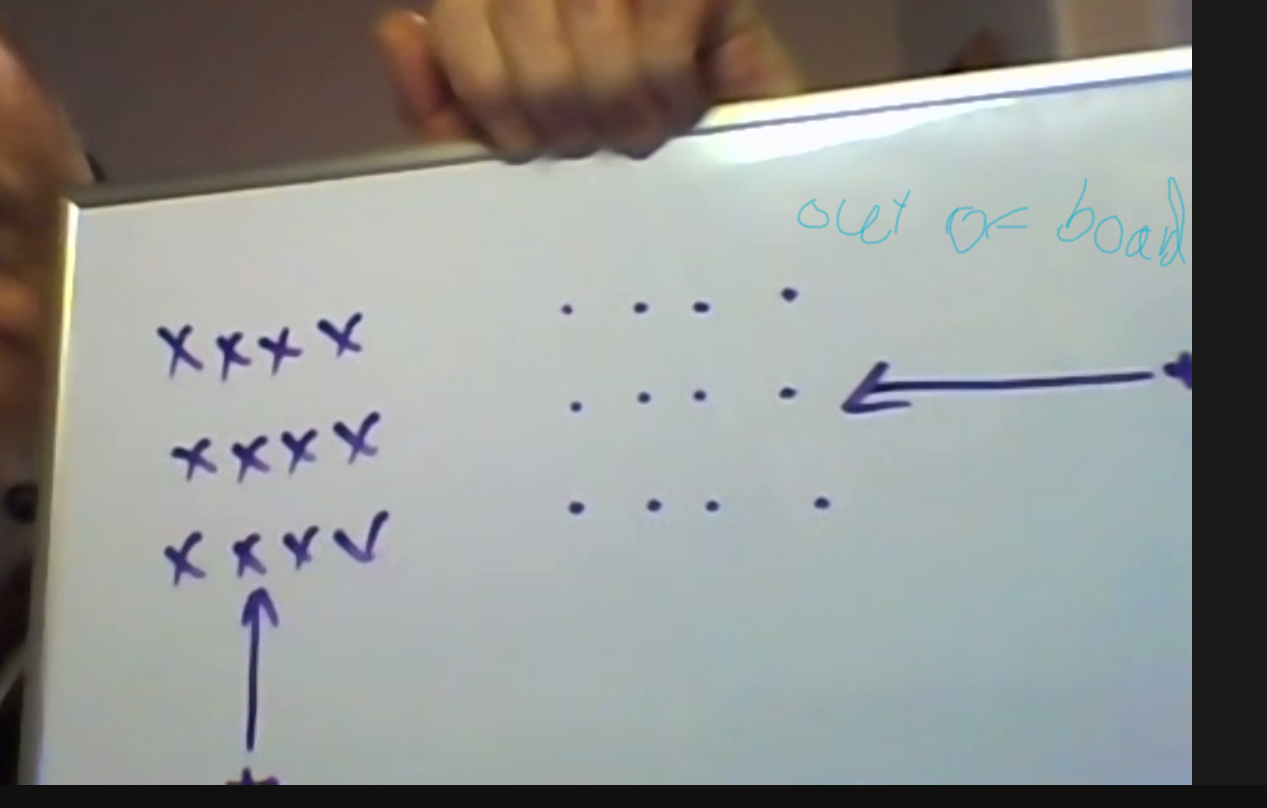 out of board
x x x x . . . .
x x x x . . . .
x x x v . . . .